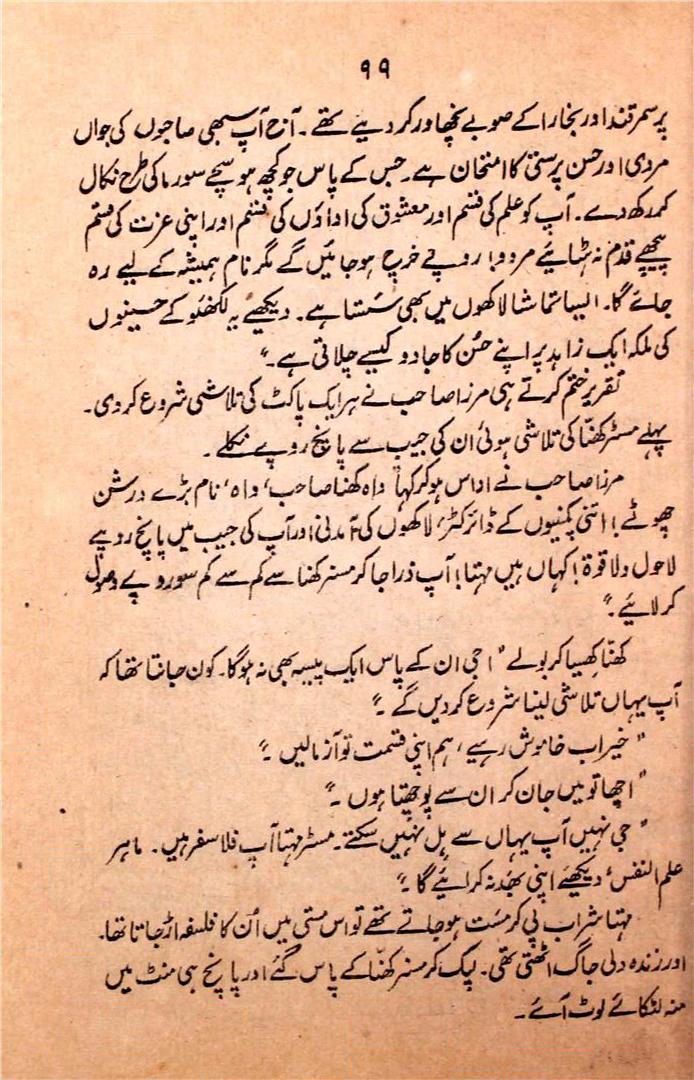 ۹۹
پر سمرقند اور بخارا کے صوبے نچھاور کر دیے تھے۔ آج آپ سبھی صاحبوں کی جواں
مردی اور حسن پرستی کا امتحان ہے۔ جس کے پاس جو کچھ ہو سچے سورما کی طرح نکال
کر رکھ دے۔ آپ کو علم کی قسم اور معشوق کی اداؤں کی قسم اور اپنی عزت کی قسم
پیچھے قدم نہ ہٹایئے مردو! روپے خرچ ہو جائیں گے مگر نام ہمیشہ کے لیے رہ
جائے گا۔ ایسا تماشا لاکھوں میں بھی سستا ہے۔ دیکھیے یہ لکھنؤ کے حسینوں
کی ملکہ ایک زاہد پر اپنے حسن کا جادو کیسے چلاتی ہے۔"
تقریر ختم کرتے ہی مرزا صاحب نے ہر ایک پاکٹ کی تلاشی شروع کر دی۔
پہلے مسٹر کھنّا کی تلاشی ہوئی ان کی جیب سے پانچ روپے نکلے۔
مرزا صاحب نے اداس ہو کر کہا "واہ کھنا صاحب، واہ، نام بڑے درشن
چھوٹے! اتنی کمپنیوں کے ڈائرکٹر، لاکھوں کی آمدنی اور آپ کی جیب میں پانچ روپیے
لاحول ولا قوۃ! کہاں ہیں مہتا! آپ ذرا جا کر مسز کھنا سے کم سے کم سو روپے وصول
کر لائیے۔"
کھنّا کھسیا کر بولے "اجی ان کے پاس ایک پیسہ بھی نہ ہوگا۔ کون جانتا تھا کہ
آپ یہاں تلاشی لینا شروع کر دیں گے۔"
"خیر اب خاموش رہیے، ہم اپنی قسمت تو آزمالیں۔"
"اچھا تو میں جان کر ان سے پوچھتا ہوں۔"
"جی نہیں آپ یہاں سے ہل نہیں سکتے۔ مسٹر مہتا آپ فلاسفر ہیں۔ ماہر
علم النفس، دیکھئے اپنی بھد نہ کرائیے گا۔"
مہتا شراب پی کر مست ہو جاتے تھے تو اس مستی میں اُن کا فلسفہ اڑ جاتا تھا۔
اور زندہ دلی جاگ اٹھتی تھی۔ لپک کر مسز کھنّا کے پاس گئے اور پانچ ہی منٹ میں
منہ لٹکائے لوٹ آئے۔